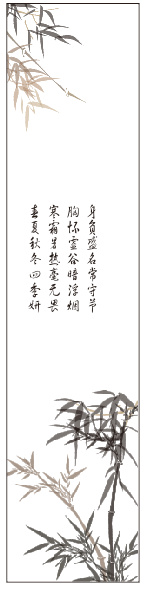 身负盛名常守节
胸怀虚谷暗浮烟
寒霜暑热毫无畏
春夏秋冬四季妍